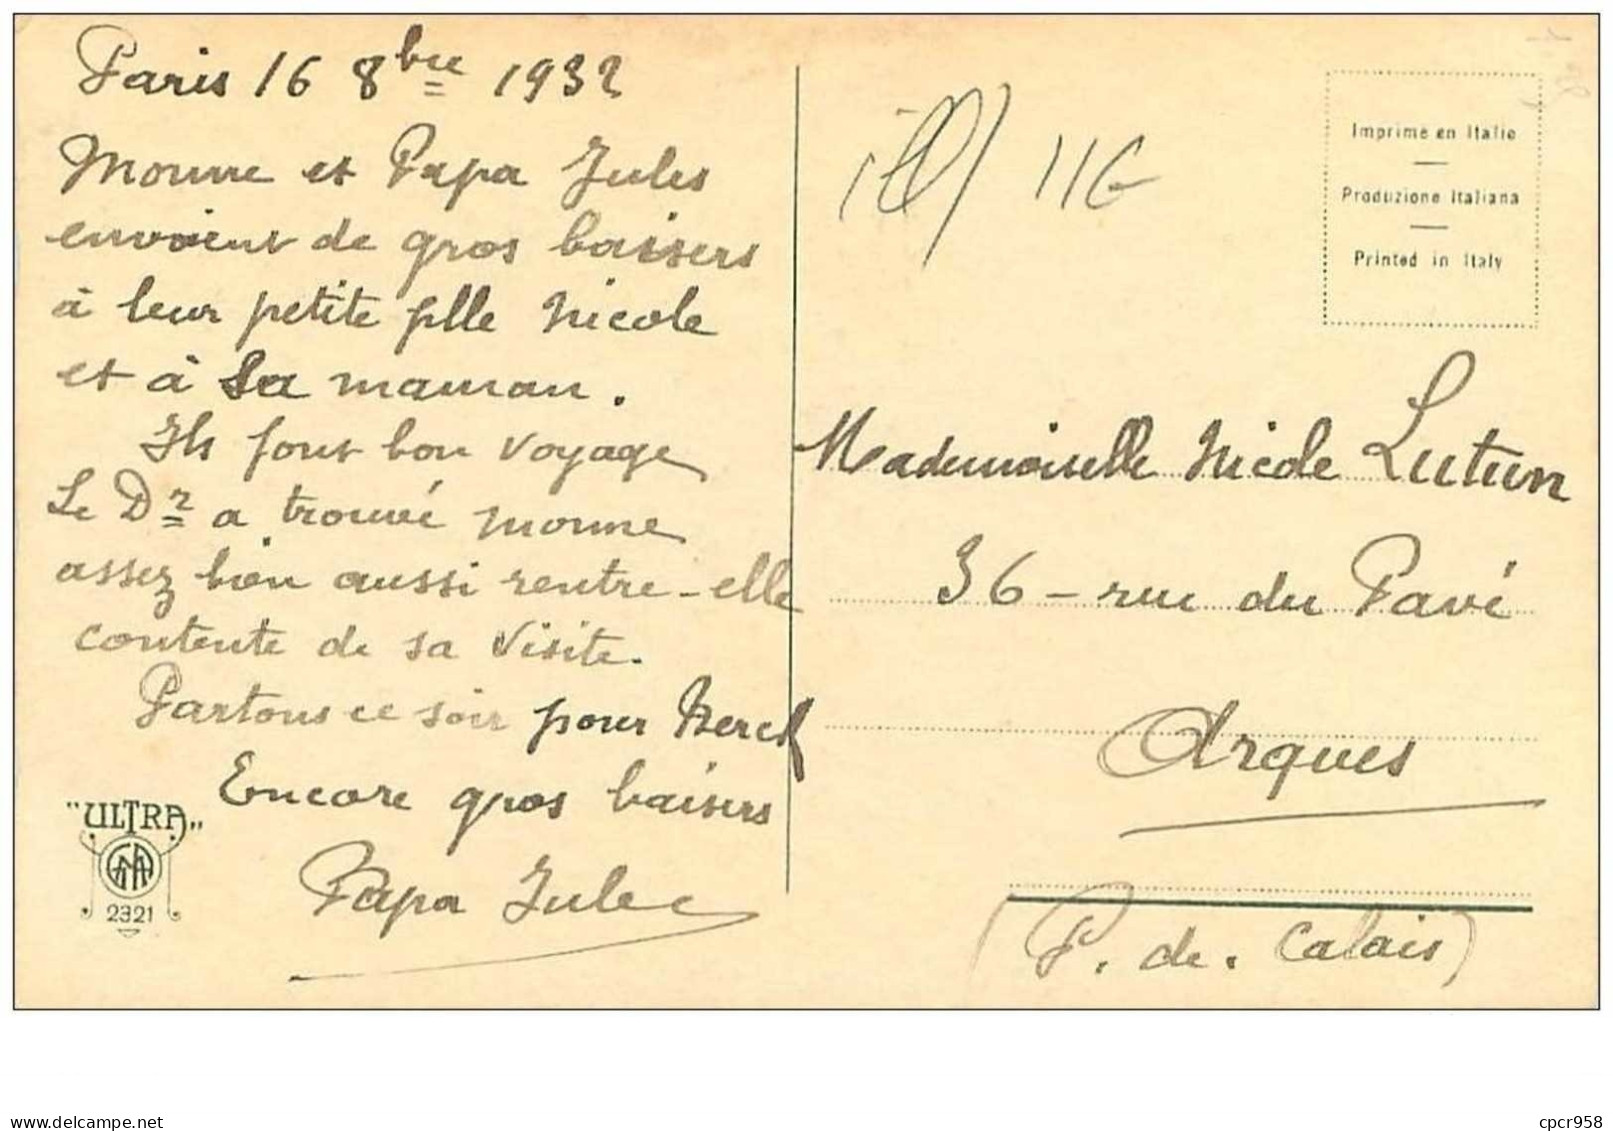 Paris 16 8bre 1932
Moune et Papa Jules
envoient de gros baisers
à leur petite fille Nicole
et à sa maman.
Ils font bon voyage
Le Dr a trouvé Moune
assez bien aussi rentre-elle
contente de sa visite.
Partons ce soir pour Berck
Encore gros baisers
Papa Jules
"ULTRA"
2321
ill/ 116
Imprimé en Italie
Produzione Italiana
Printed in Italy
Mademoiselle Nicole Lutun
36 - rue du Pavé
Arques
(P. de. Calais)
www.delcampe.net
cpcr958